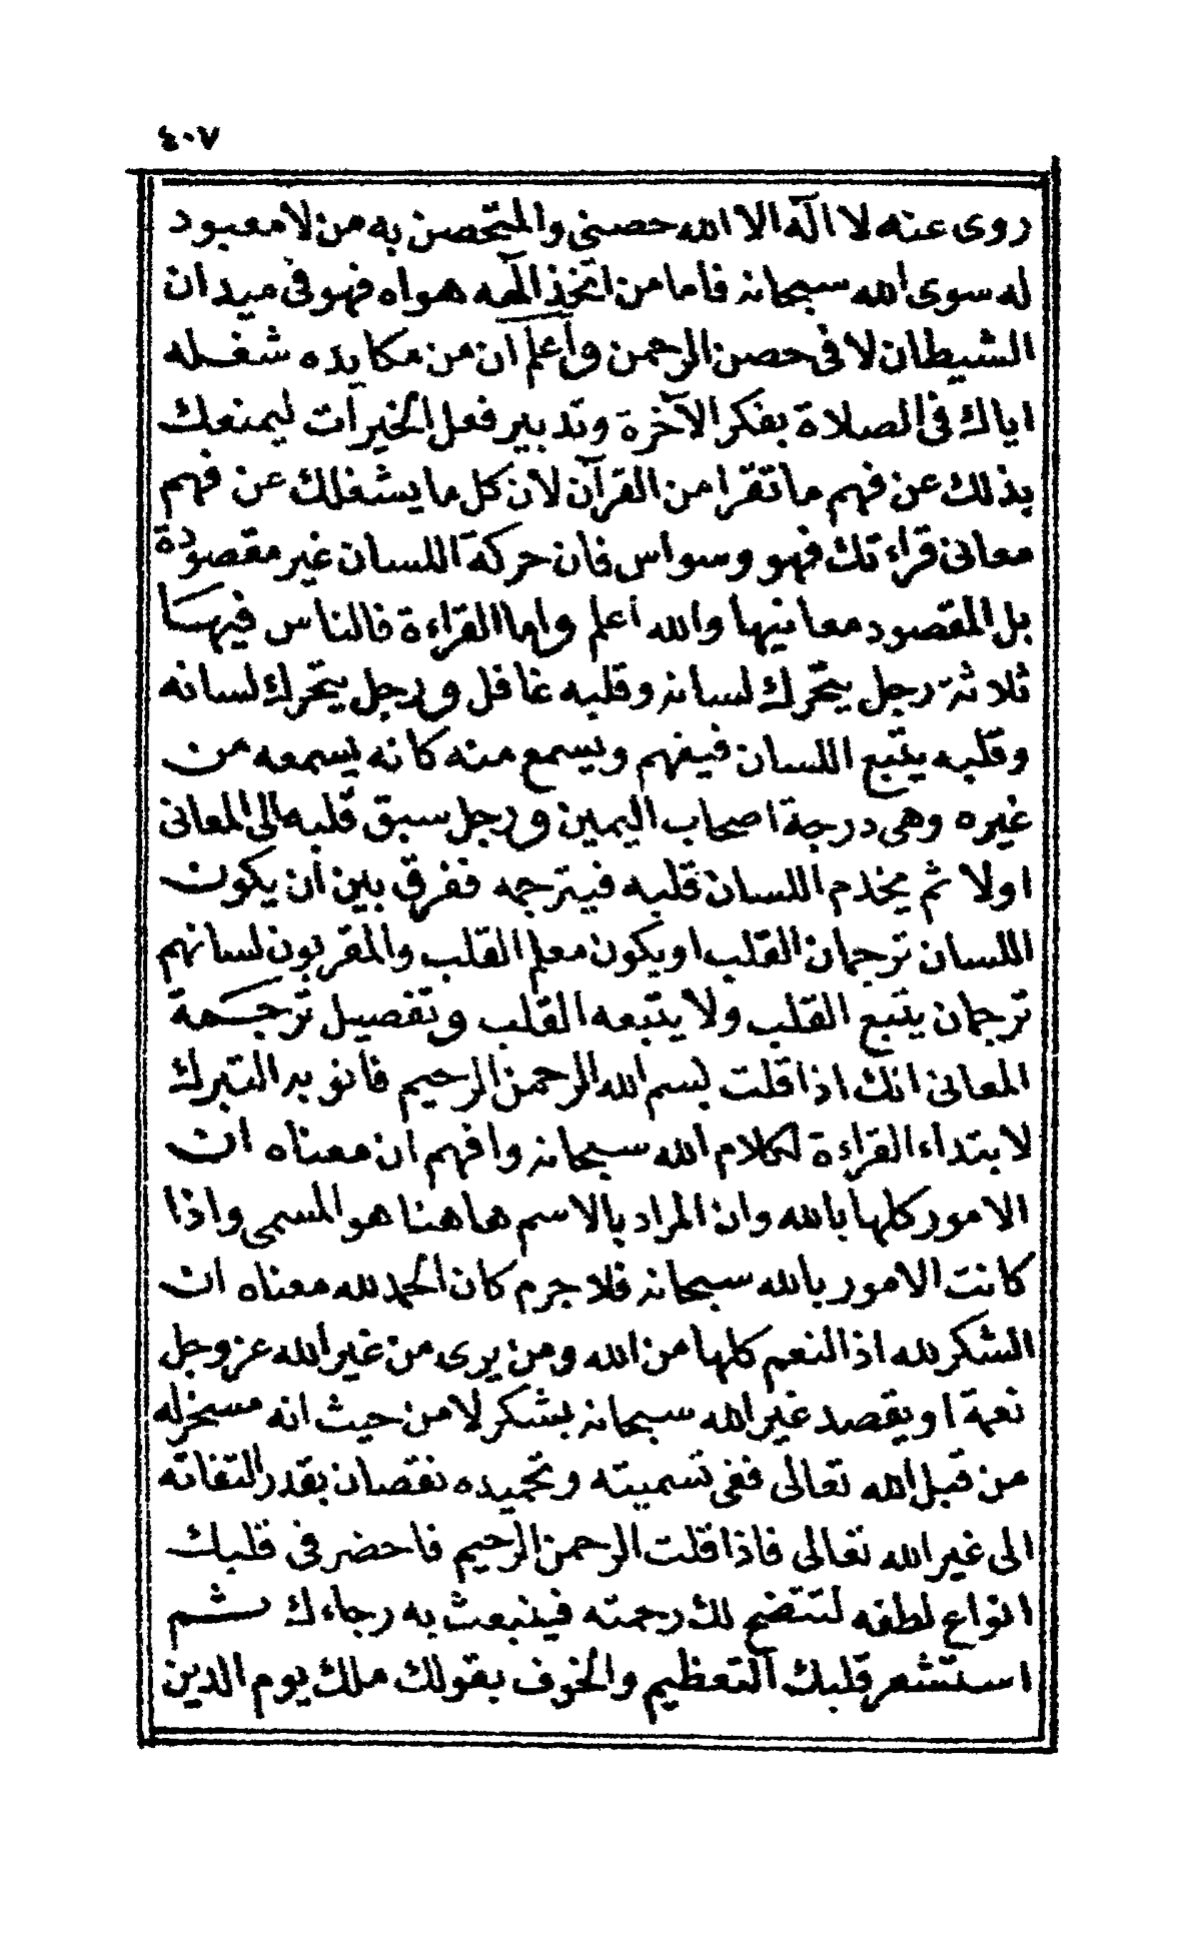 ٤٠٧
روى عنه لا اله الا الله حصنى والمتحصن به من لا معبود
له سوى الله سبحانه فاما من اتخذ الهه هواه فهو فى ميدان
الشيطان لا فى حصن الرحمن واعلم ان من مكايده شغله
اياك فى الصلاة بفكر الآخرة وتدبير فعل الخيرات ليمنعك
بذلك عن فهم ما تقرا من القرآن لان كل ما يشغلك عن فهم
معانى قراءتك فهو وسواس فان حركة اللسان غير مقصودة
بل المقصود معانيها والله اعلم واما القراءة فالناس فيها
ثلاثة رجل يتحرك لسانه وقلبه غافل ورجل يتحرك لسانه
وقلبه يتبع اللسان فيفهم ويسمع منه كانه يسمعه من
غيره وهى درجة اصحاب اليمين ورجل سبق قلبه الى المعانى
اولا ثم يخدم اللسان قلبه فيترجمه ففرق بين ان يكون
اللسان ترجمان القلب او يكون معلم القلب والمقربون لسانهم
ترجمان يتبع القلب ولا يتبعه القلب وتفصيل ترجمة
المعانى انك اذا قلت بسم الله الرحمن الرحيم فانو به التبرك
لابتداء القراءة لكلام الله سبحانه وافهم ان معناه ان
الامور كلها بالله وان المراد بالاسم هاهنا هو المسمى واذا
كانت الامور بالله سبحانه فلا جرم كان الحمد لله معناه ان
الشكر لله اذ النعم كلها من الله ومن يرى من غير الله عز وجل
نعمة او يقصد غير الله سبحانه بشكر لا من حيث انه مسخر له
من قبل الله تعالى ففى تسميته وتحميده نقصان بقدر التفاته
الى غير الله تعالى فاذا قلت الرحمن الرحيم فاحضر فى قلبك
انواع لطفه لتتضح لك رحمته فينبعث به رجاءك ثم
استشعر قلبك التعظيم والخوف بقولك ملك يوم الدين